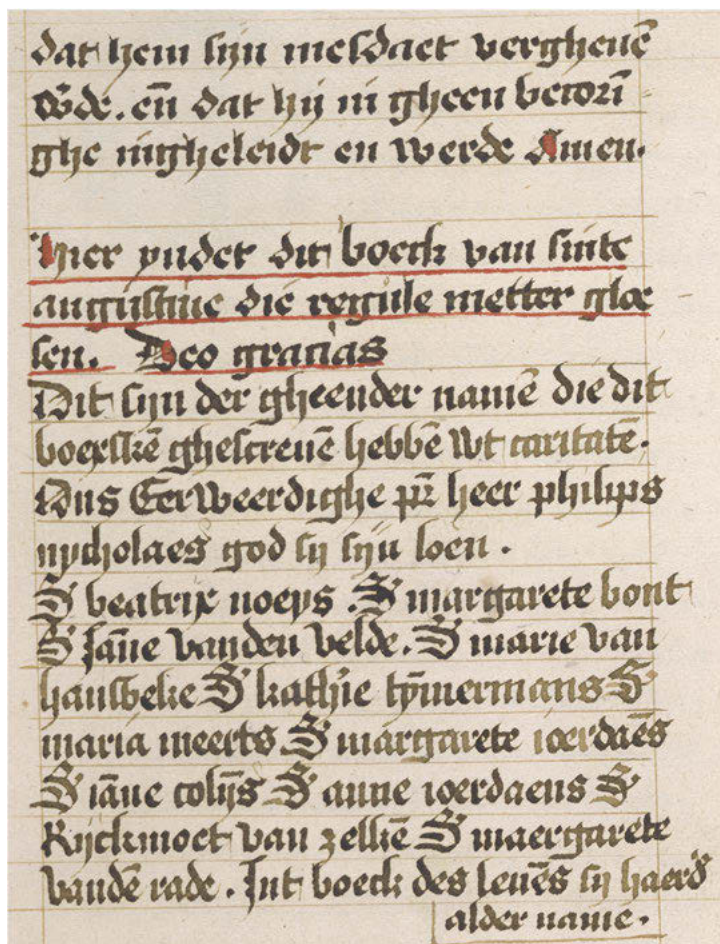 dat hem sijn mesdaet vergheuē
wȏde. eñ dat hij ni gheen becorī
ghe nigheleidt en werde Amen.
hier yndet dit boeck van sinte
augustine die regule metter gloe
sen. Deo gracias
Dit sijn der gheender namē die dit
boexskē ghescreuē hebbē wt caritatē.
Ons Eerweerdighe pr̄ heer philips
nycholaes god sy sijn loen.
S beatrix noeys. S margarete bont
S Jāne vanden velde. S marie van
hansbeke S kathīe tȳmermans S
maria meerts S margarete ioerdaēs
S iāne colijs S anne ioerdaens S
Rijckmoet van zelkē S maergarete
vandē rade. Int boeck des leuēs sy haerd'
alder name.